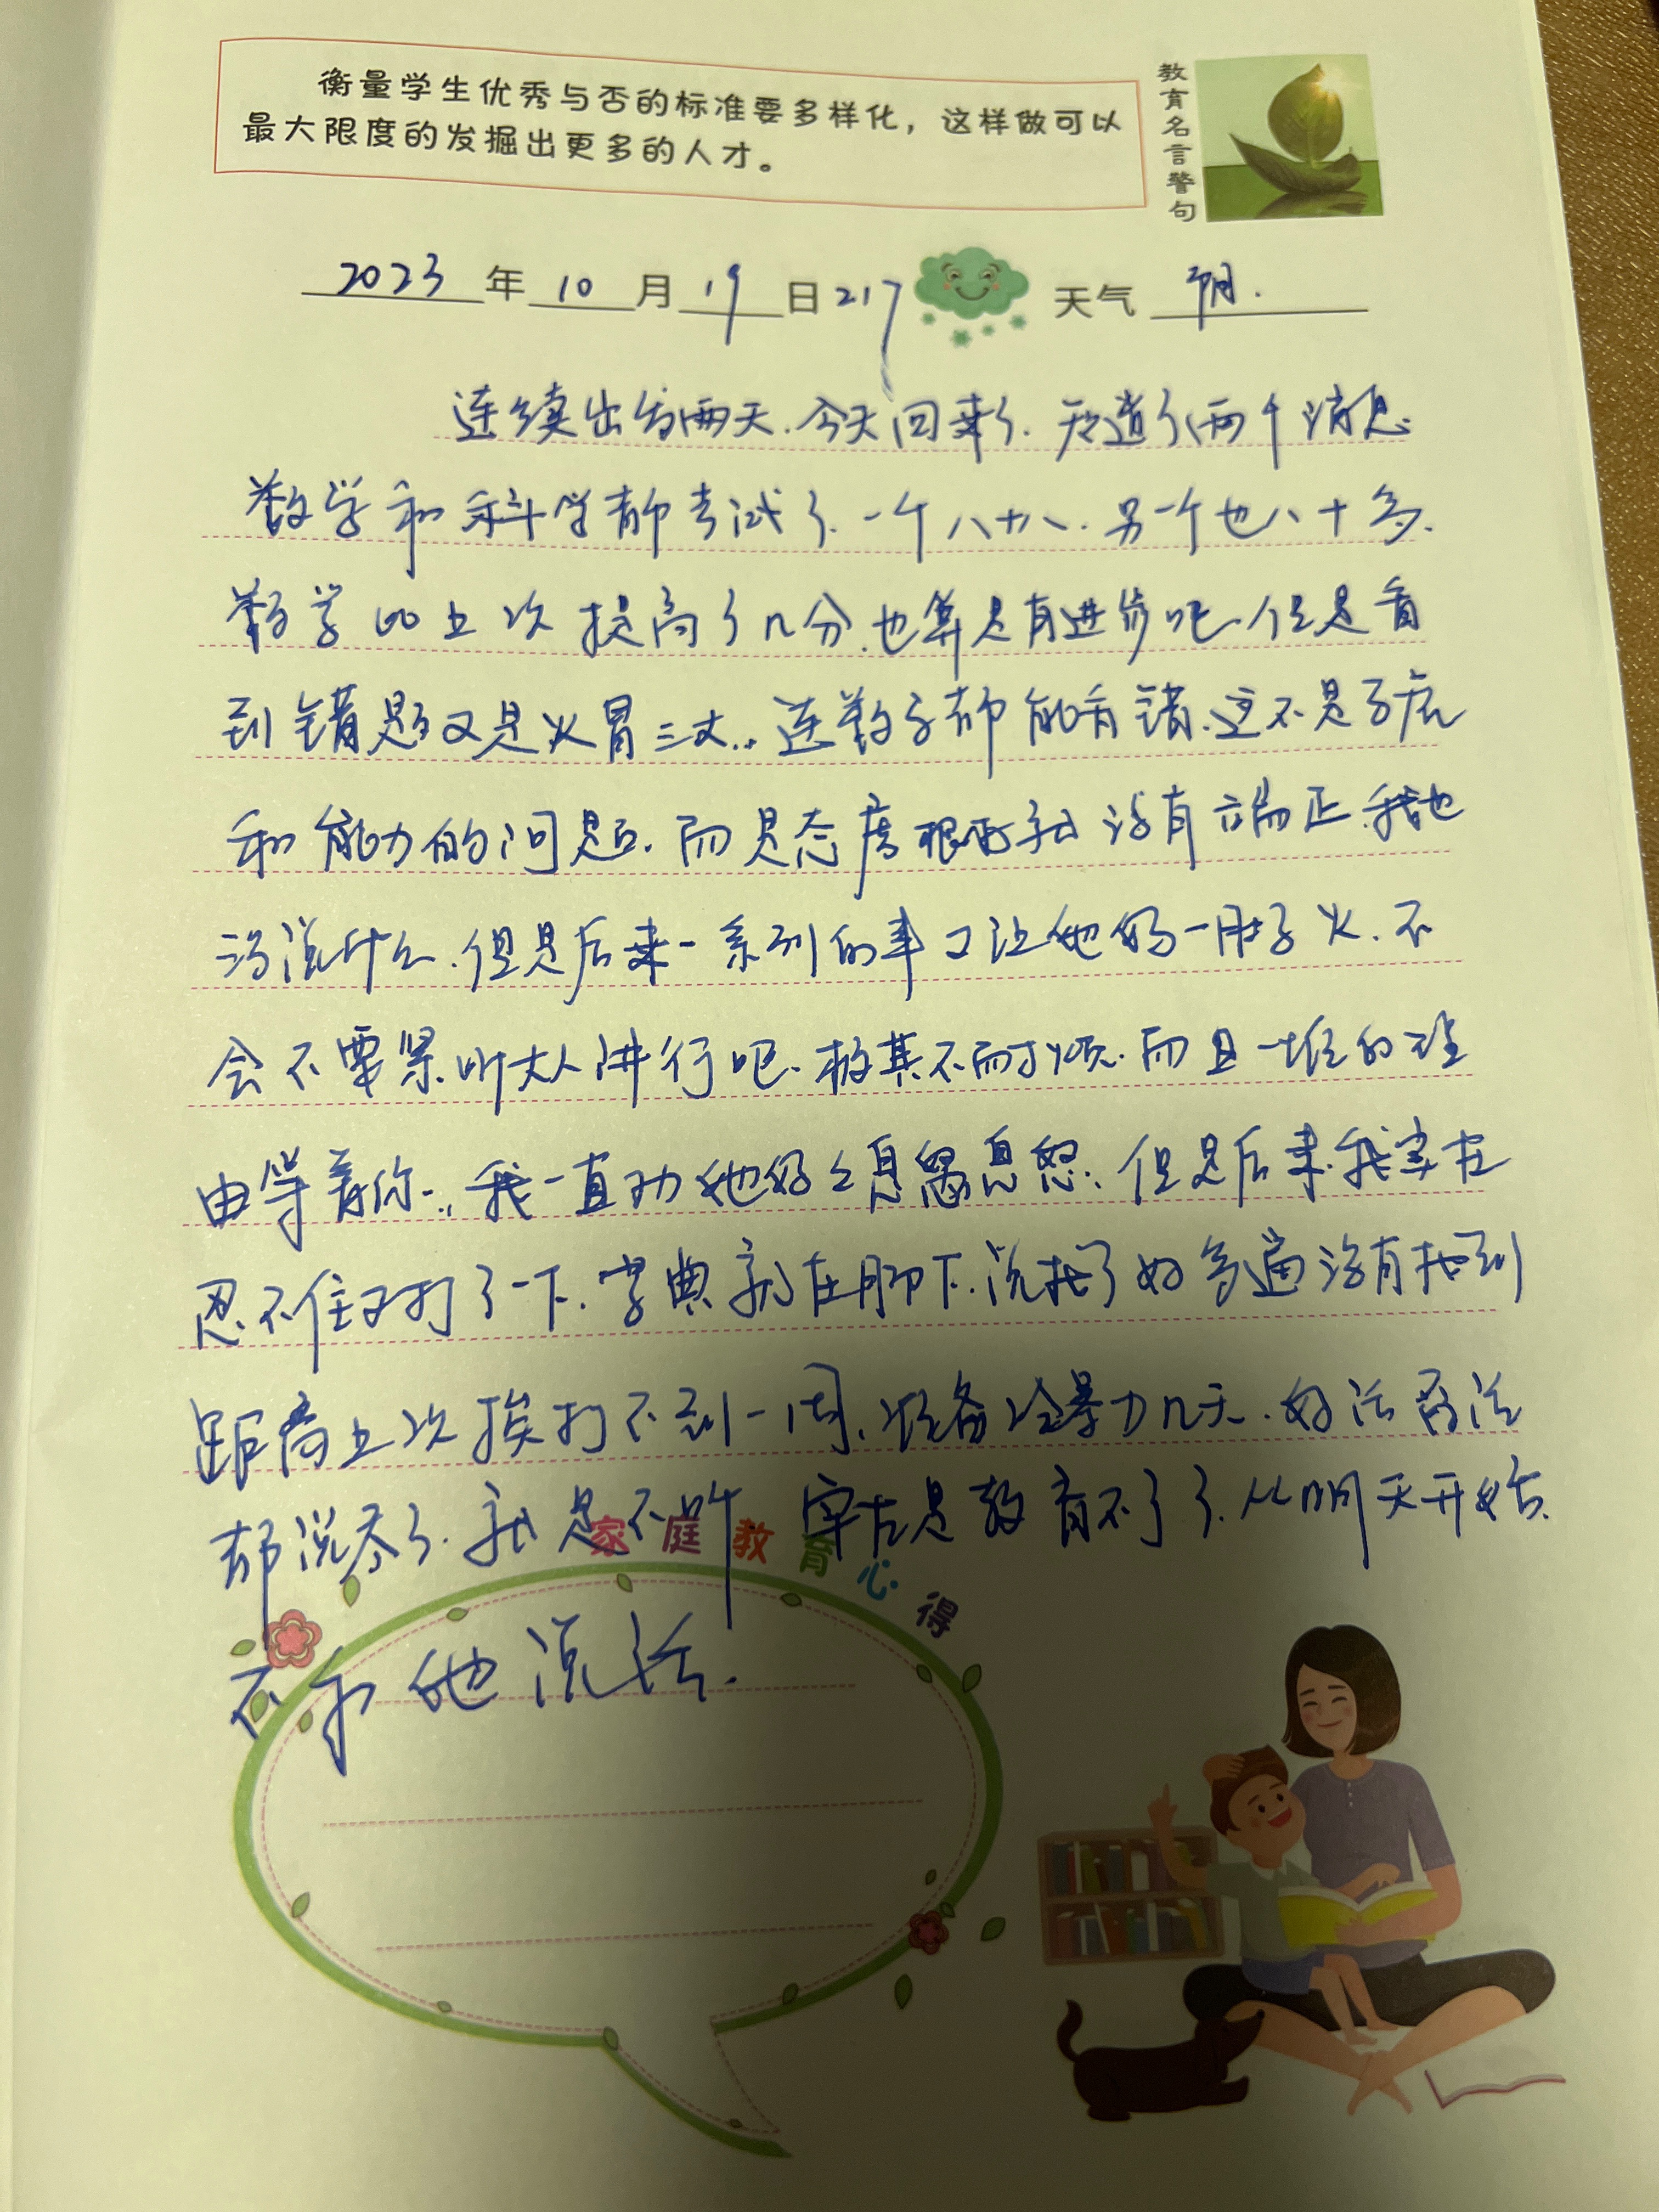 衡量学生优秀与否的标准要多样化，这样做可以
最大限度的发掘出更多的人才。
教育名言警句
2023年10月19日217 天气 阴.
连续出差两天.今天回来了.知道了两个消息.
数学和科学都考试了.一个八十八.另一个也八十多.
数学比上次提高了几分.也算是有进步吧.但是看
到错题又是火冒三丈..连数字都能看错.这不是习惯
和能力的问题.而是态度根本就没有端正.我也
没说什么.但是后来一系列的事又让她妈一肚子火.不
会不要紧.听大人讲行吧.极其不耐烦.而且一堆的理
由等着你..我一直劝她妈息怒息怒.但是后来我实在
忍不住又打了一下.字典就在脚下.说找了好多遍没有找到
距离上次挨打不到一周.准备冷暴力几天.好话
都说尽了.就是不听 实在是教育不了了.从明天开始.
不和他说话.
家庭教育心得